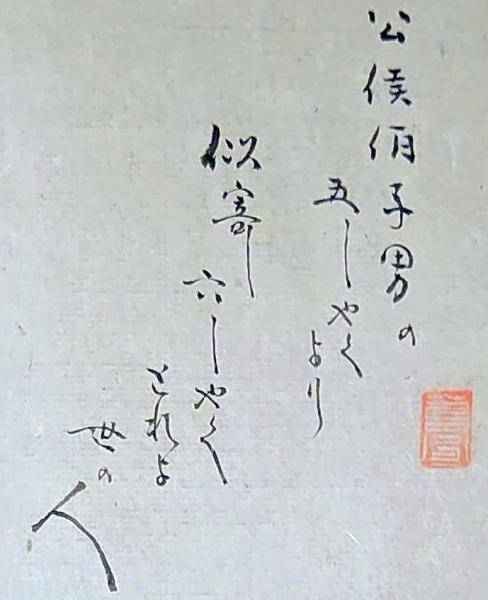 公侯伯子男の
五しやくより
似寄し
六しやく
とれよ
世の
人